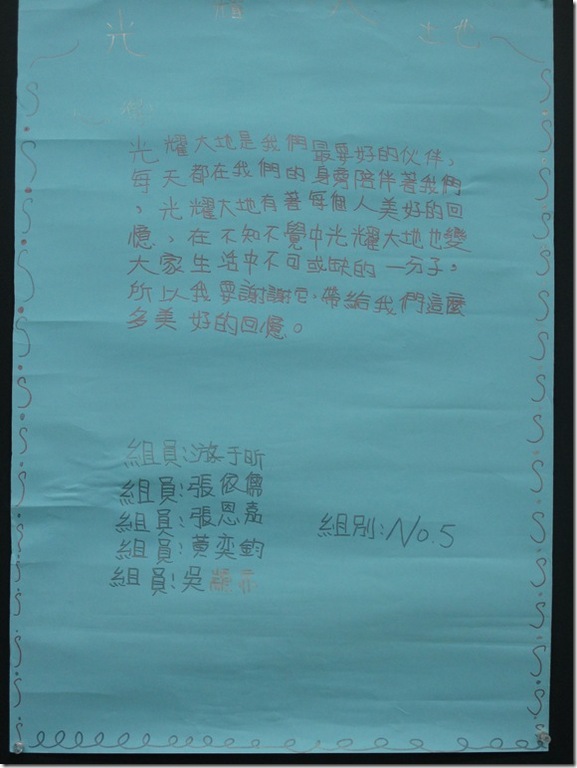 光耀大地
光耀大地是我們最要好的伙伴,
每天都在我們的身旁陪伴著我們
,光耀大地有著每個人美好的回
憶,在不知不覺中光耀大地也變
大家生活中不可或缺的一分子,
所以我要謝謝它,帶給我們這麼
多美好的回憶。
組員:游于昕
組員:張依儒
組員:張恩嘉
組員:黃奕鈞
組員:吳
組別:No.5